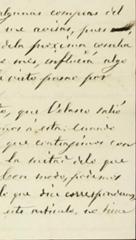 algunas compras del
me avisas, pues
dela próxima cosecha
mes, influirá algo
visto pasar por
to, que Velasco salió
mos a esta. Cuando
que contragimos con
la mitad de lo que
buen modo, podemos
lo que sea correspondiente
este artículo, no tiene